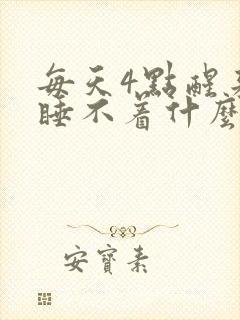 每天4點醒
睡不着什麼
安寶素